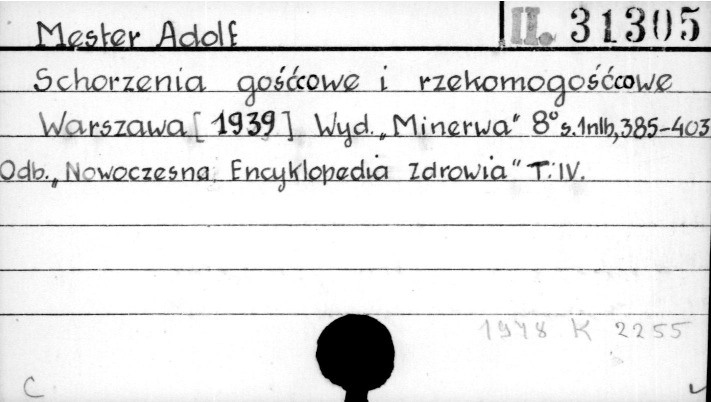 Mester Adolf II. 31305
Schorzenia gośćcowe i rzekomogośćcowe
Warszawa [1939] Wyd. „Minerwa" 8° s.1nlb,385-403
Odb. „Nowoczesna Encyklopedia Zdrowia" T. IV.
1948 K 2255
C